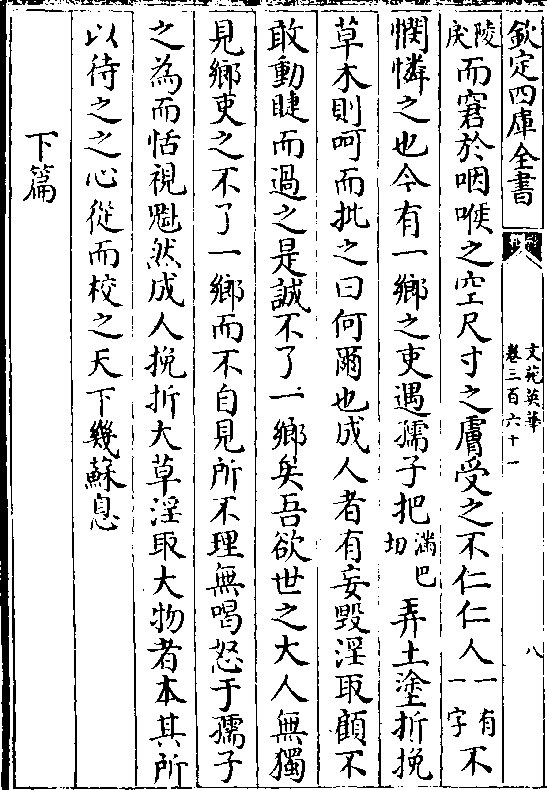 欽定四庫全書
文苑英華
卷三百六十一
八
陵戾而窘於咽喉之空尺寸之膚受之不仁仁人一有一字不
憫憐之也今有一鄉之吏遇孺子把滿巴切弄土塗折挽
草木則呵而扯之曰何爾也成人者有妄毀淫取顧不
敢動睫而過之是誠不了一鄉矣吾欲世之大人無獨
見鄉吏之不了一鄉而不自見所不理無喝怒于孺子
之為而恬視魁然成人挽折大草淫取大物者本其所
以待之之心從而校之天下幾蘇息
下篇